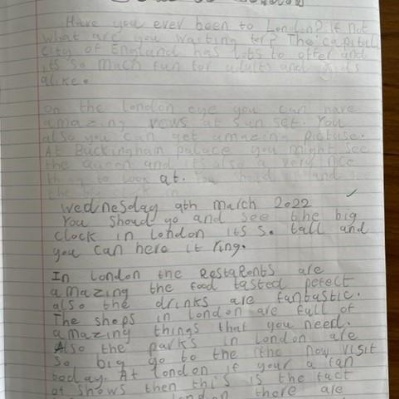 Have you ever been to London? If not
what are you waiting for? The capital
city of England has lots to offer and
its so much fun for adults and
alike.
On the london eye you can have
amazing vews at sun set. You
also you can get amazing
At Buckingham palace you might see
the queen and its also a very nice
thing to look at.
wednesday 9th march 2022
You shoud go and see the big
clock in london its so tall and
you can here it ring.
In London the restaronts are
amazing the food tasted pefect
also the drinks are fantastic.
The shops in london are full of
amazing things that you need.
Also the parks in London are
so big go to the now visit
today. At london if your a fan
of shows then this is the
london there are